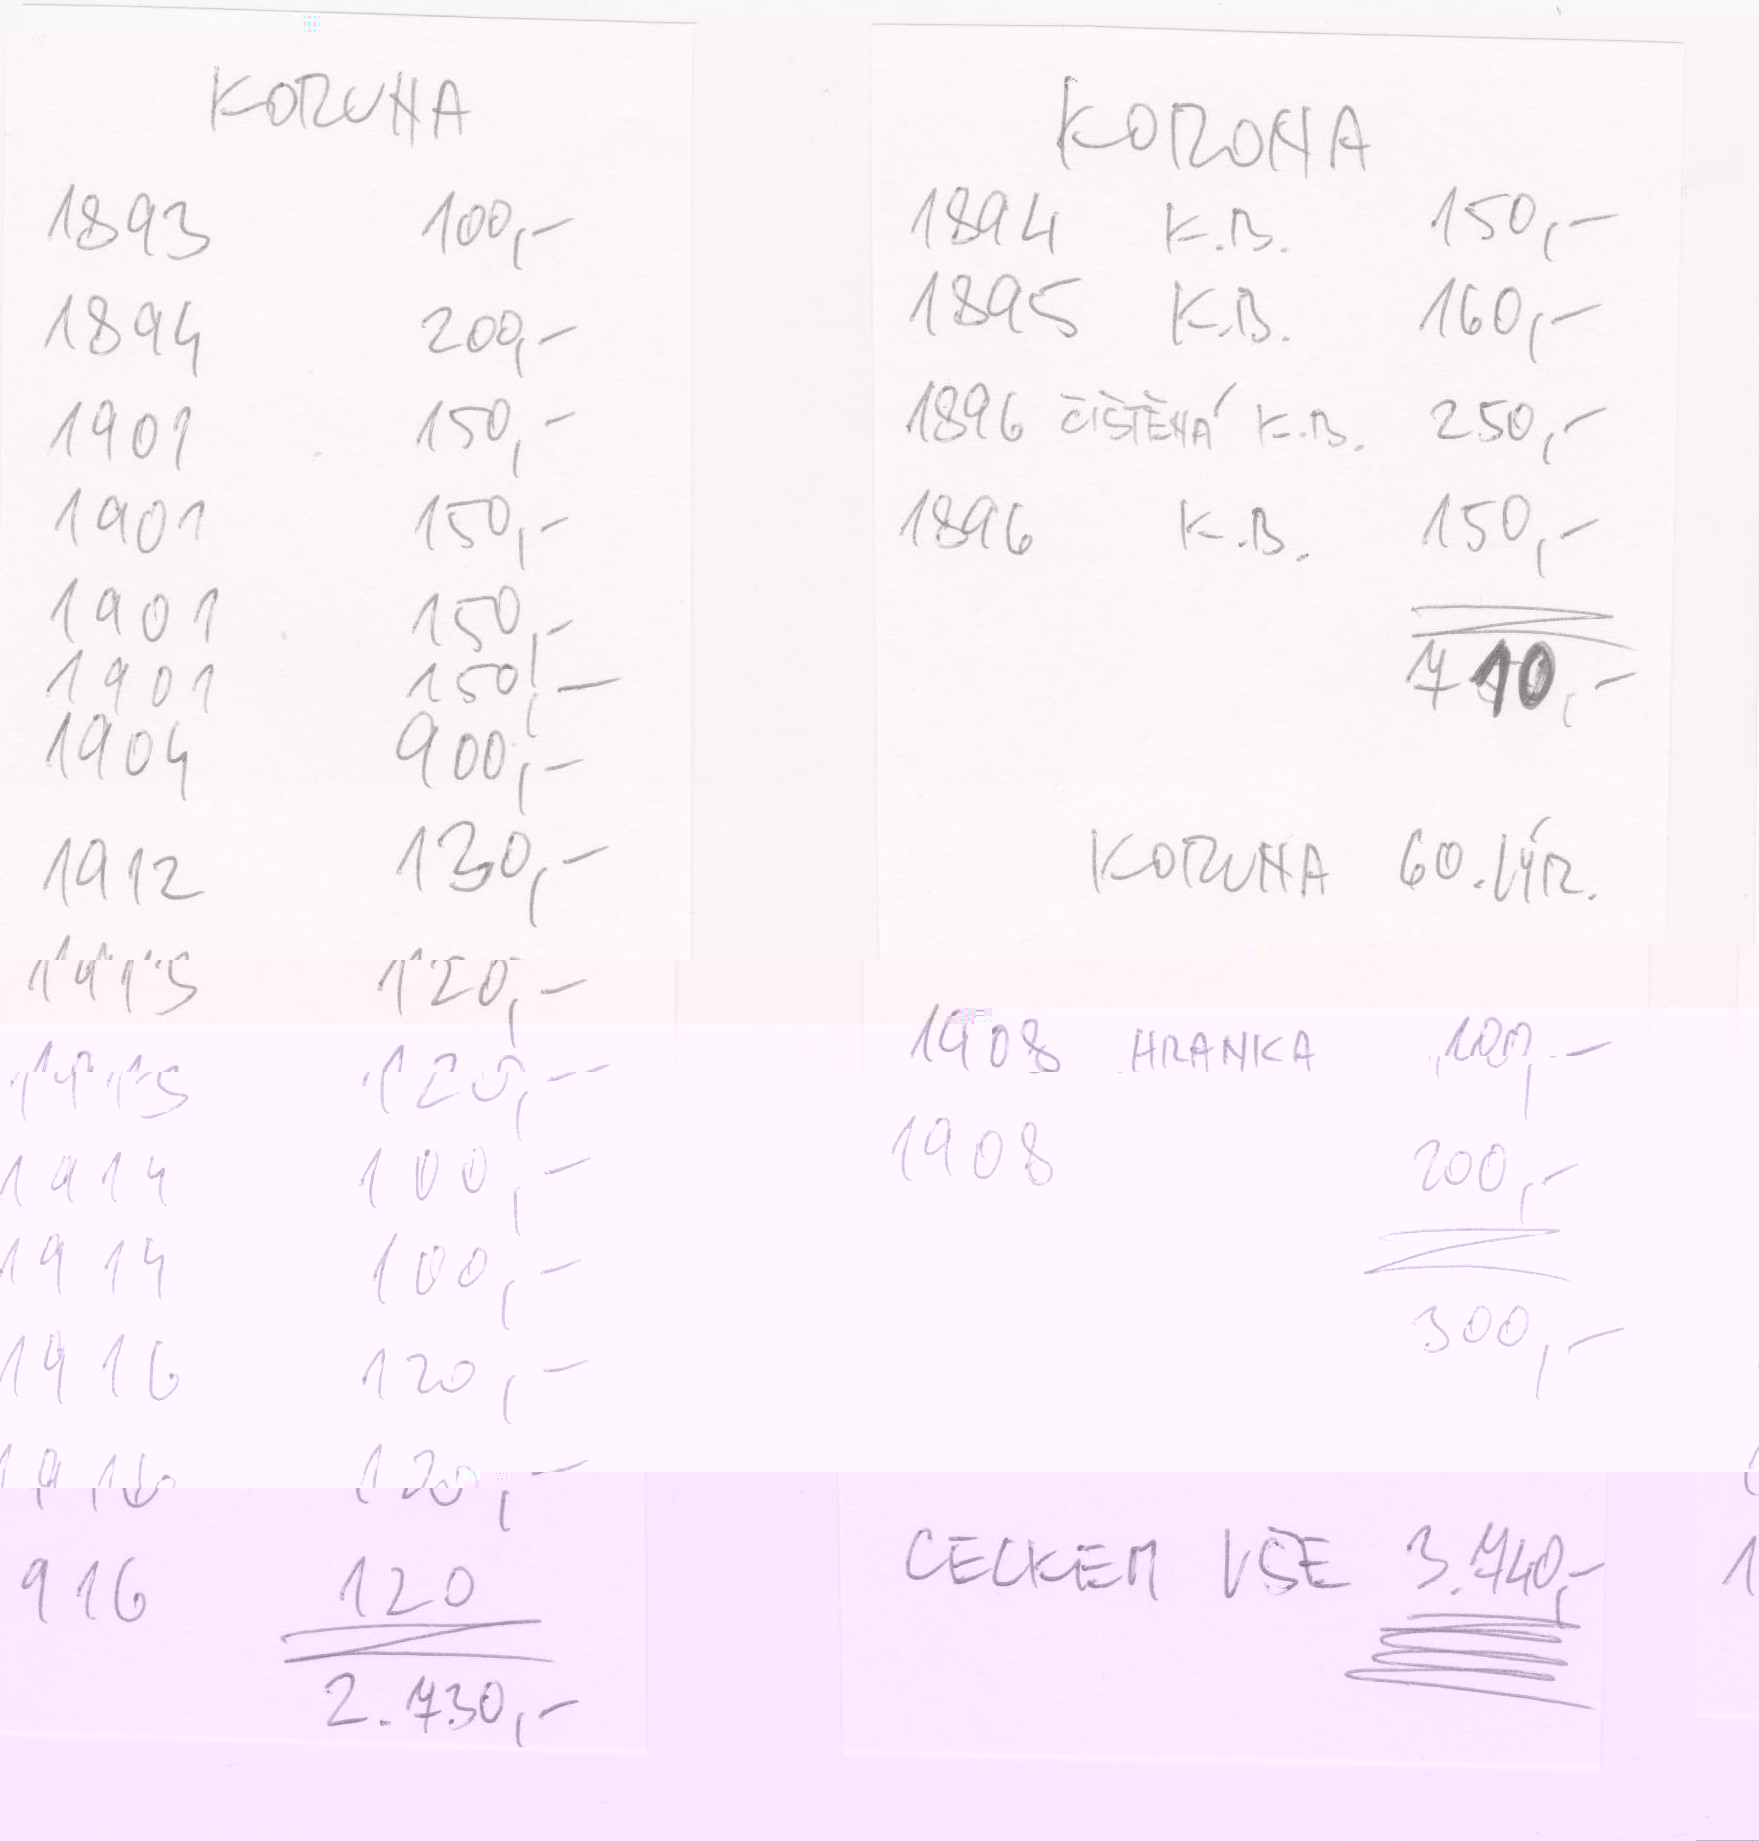 KORUNA
1893 100,-
1894 200,-
1901 150,-
1901 150,-
1901 150,-
1901 150,-
1904 900,-
1912 130,-
1913 120,-
1913 120,-
1914 100,-
1914 100,-
1916 120,-
1916 120,-
916 120
2.730,-
KORONA
1894 K.B. 150,-
1895 K.B. 160,-
1896 ČIŠTĚNÁ K.B. 250,-
1896 K.B. 150,-
710,-
KORUNA 60.VÝR.
1908 HRANKA 100,-
1908 200,-
300,-
CELKEM VŠE 3.740,-